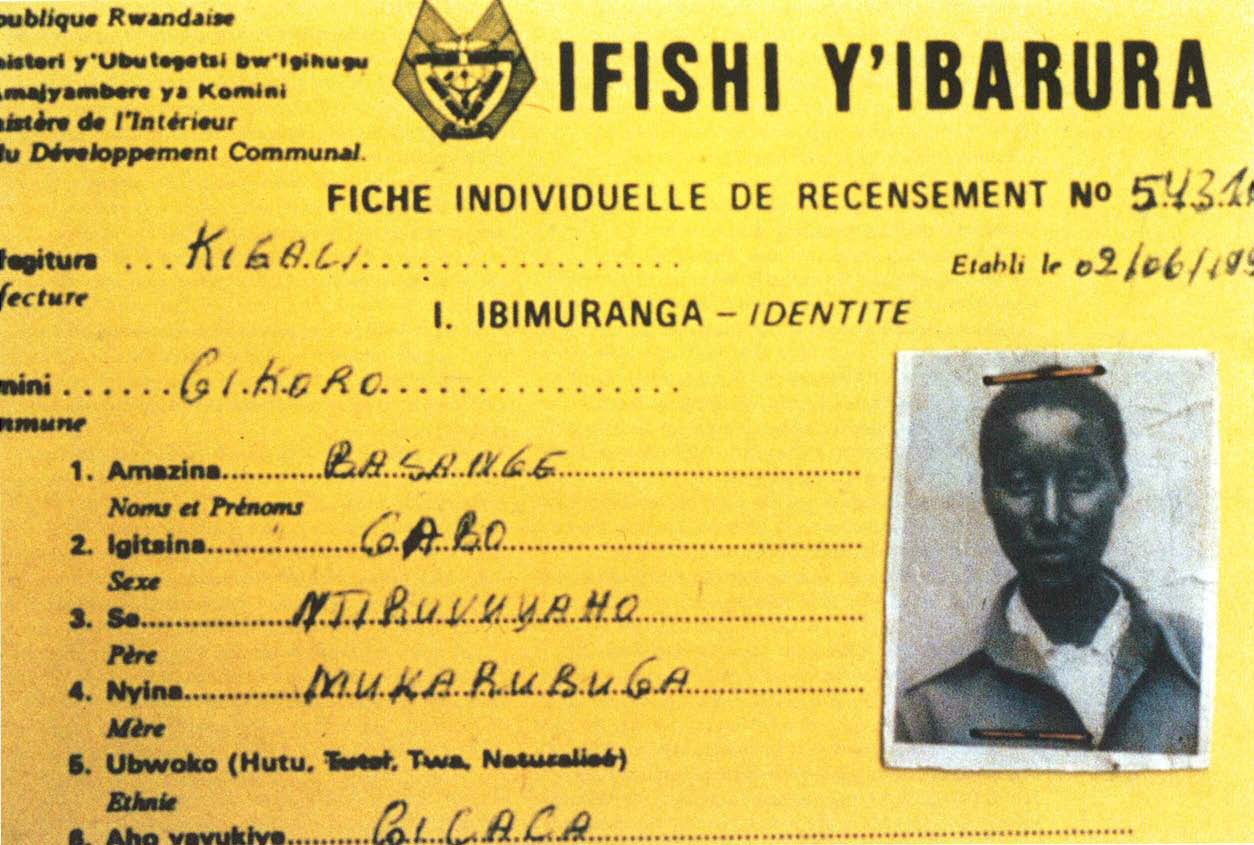 publique Rwandaise
nisteri y'Ubutegetsi bw'Igihugu
Amajyambere ya Komini
nistère de l'Intérieur
du Développement Communal.
IFISHI Y'IBARURA
FICHE INDIVIDUELLE DE RECENSEMENT No
fegitura ... KIGALI
fecture
Etabli le 02/06/199
I. IBIMURANGA – IDENTITE
mini ...... GIKORO
mmune
1. Amazina BASANGE
Noms et Prénoms
2. Igitsina GABO
Sexe
3. Se NTIRUVUYAHO
Père
4. Nyina MUKARUBUGA
Mère
5. Ubwoko (Hutu, Tutsi, Twa, Naturalisé)
Ethnie
6. Aho yavukiye GICACA